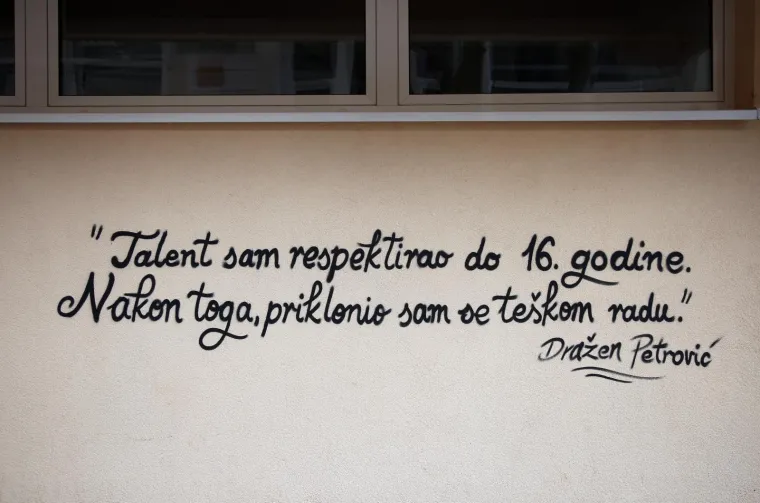 "Talent sam respektirao do 16. godine.
Nakon toga, priklonio sam se teškom radu."
Dražen Petrović